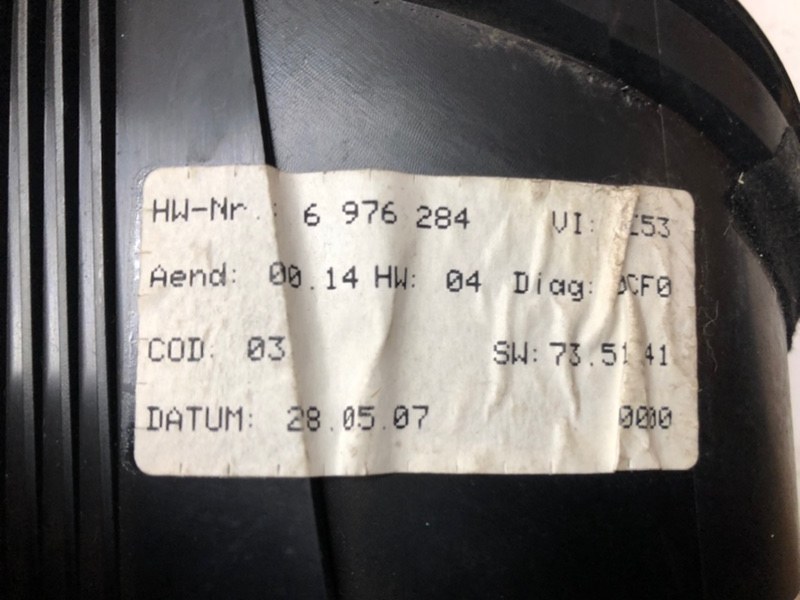 HW-Nr.: 6 976 284 VI:
Aend: 00.14 HW: 04 Diag:
COD: 03 SW: 73.51.41
DATUM: 28.05.07